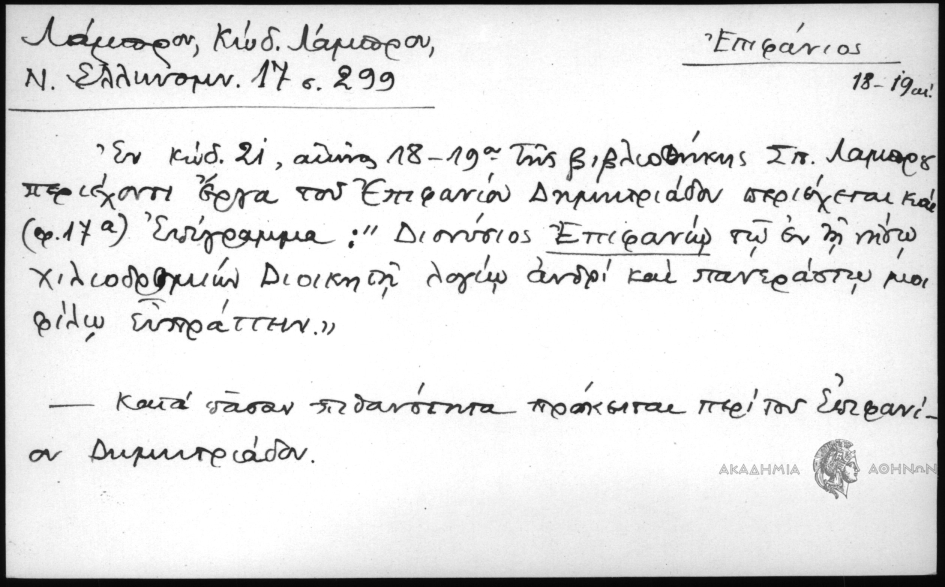 Λάμπρου, Κώδ. Λάμπρου,
Ἐπιφάνιος
Ν. Ἑλληνομν. 17 σ. 299
18-19 αἰ.
Ἐν κώδ. 21, αἰῶνος 18-19ου τῆς βιβλιοθήκης Σπ. Λάμπρου
περιέχοντι ἔργα τοῦ Ἐπιφανίου Δημητριάδου περιέχεται καὶ
(φ. 17α) Ἐπίγραμμα: "Διονύσιος Ἐπιφανίῳ τῷ ἐν τῇ νήσῳ
χιλιοδρομιῶν Διοικητῇ λογίῳ ἀνδρί καὶ πανεράστῳ μοι
φίλῳ εὖ πράττειν."
— Κατά πᾶσαν πιθανότητα πρόκειται περί τοῦ Ἐπιφανί-
ου Δημητριάδου.
ΑΚΑΔΗΜΙΑ ΑΘΗΝΩΝ